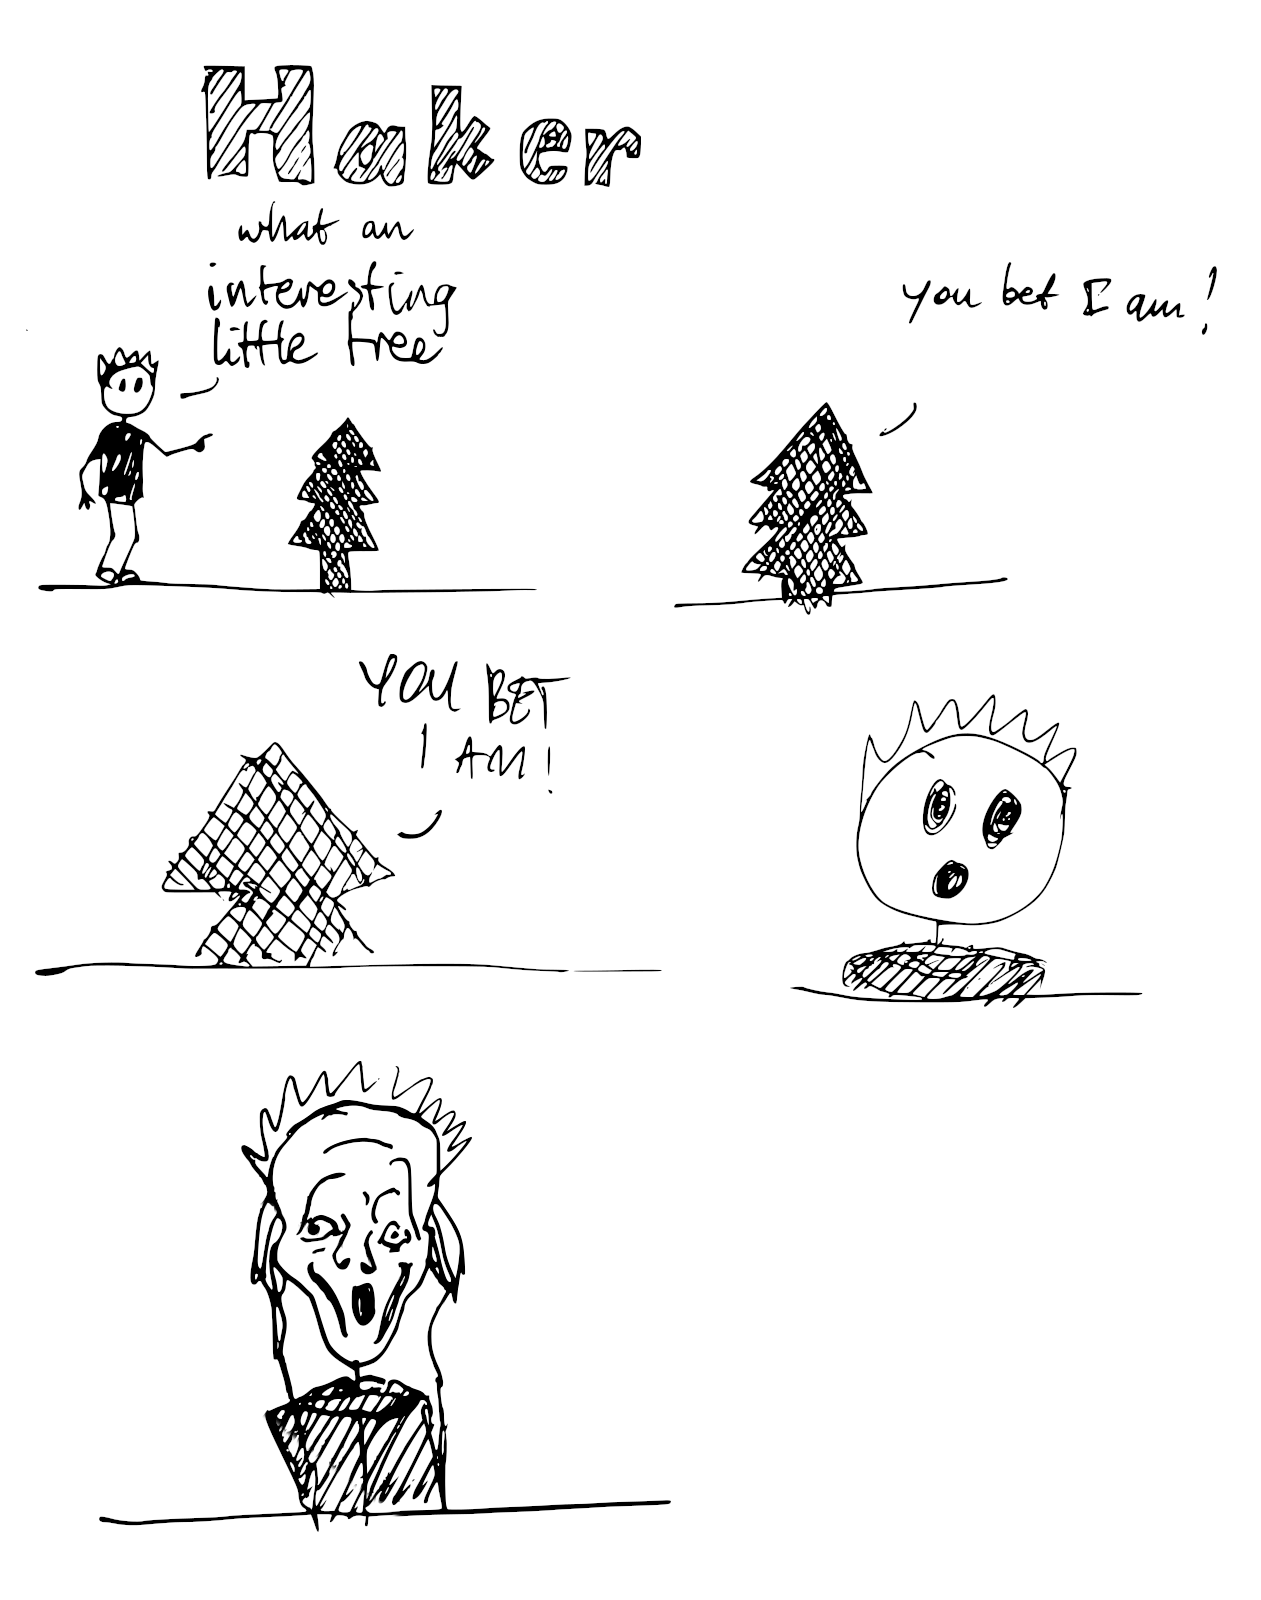 Haker
what an
interesting
little tree
you bet I am!
YOU BET
I AM!